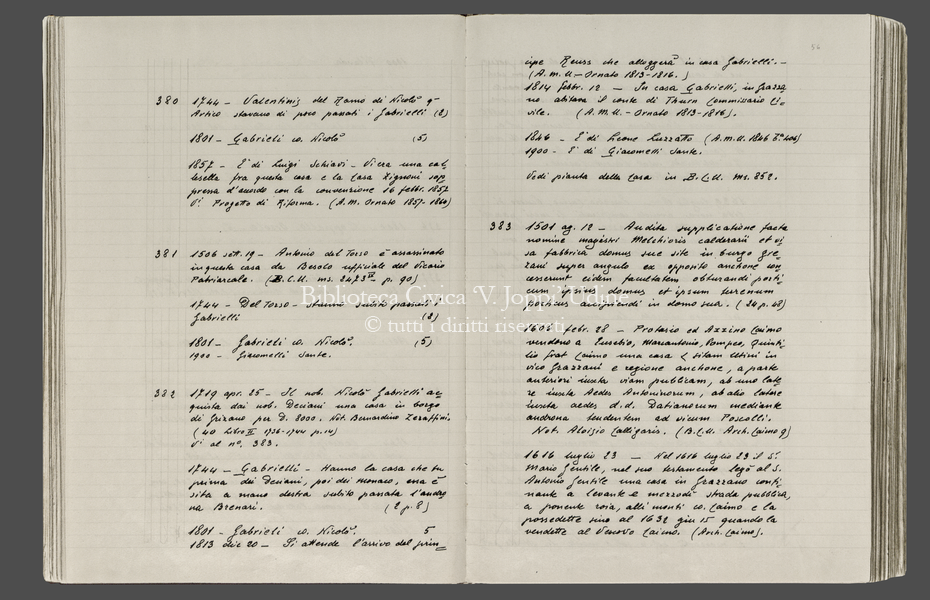 380 1744 – Valentinis del Ramo di Nicolò q.m
Artico stavano di poco passati i Gabrielli (2)
1801 – Gabrieli co. Nicolò (5)
1857 – E' di Luigi Schiavi – Vi era una cal-
lesella fra questa casa e la Casa Zignoni sop-
pressa d'accordo con la convenzione 16 febbr. 1857
Vi Progetto di Riforma. (A.M. Ornato 1857-1860)
381 1506 ott. 19 – Antonio del Torso è assassinato
in questa casa da Besolo ufficiale del Vicario
Patriarcale. (B.C.U. ms. 2473 IV p. 90)
1744 – Del Torso – stanno subito passati i
Gabrielli (2)
1801 – Gabrieli co. Nicolò. (5)
1900 – Giacomelli Sante.
382 1719 apr. 25 – Il nob. Nicolò Gabrielli ac-
quista dai nob. Deciani una casa in borgo
di Grazano per D. 8000. Not. Bernardino Zeraffini.
(40 Libro II 1736-1744 p. 14)
Vi al no. 383.
1744 – Gabrielli – Hanno la casa che fu
prima dei Deciani, poi dei Monaco, ora è
sita a mano destra subito passata l'andro-
na Brenari. (2 p. 8)
1801 – Gabrieli co. Nicolò. 5
1813 dic 20 – Si attende l'arrivo del prin-
56
cipe Reuss che alloggerà in casa Gabrielli. –
(A.M.U – Ornato 1813-1816.)
1814 febbr. 12 – In casa Gabrielli, in Grazza-
no abitava il conte di Thurn Commissario Ci-
vile. (A.M.U. – Ornato 1813-1816).
1846 – E' di Leone Luzzatto (A.M.U. 1846
1900 – E' di Giacomelli Sante.
Vedi pianta della Casa in B.C.U. ms. 852.
383 1501 ag. 12 – Audita supplicatione facta
nomine magistri Melchioris calderarii et vi-
sa fabbrica domus sue site in burgo Gre-
zani super angulo ex opposito anchone con-
cesserunt eidem facultatem obturandi porti-
cum ipsius domus et ipsum terrenum
porticus accipiendi in domo sua. (34 p. 48)
Biblioteca Civica 'V. Joppi' Udine
© tutti i diritti riservati
1606 febr. 28 – Protasio ed Azzino Caimo
vendono a Eusebio, Marcantonio, Pompeo, Quinti-
lio frat. Caimo una casa < sitam Utini in
vico Grazzani e regione anchone, a parte
anteriori iuxta viam publicam, ab uno late-
re iuxta Aedes Antonirorum, ab alio latere
iuxta aedes d.d. Datianorum mediante
androna tendentem ad vicum Poscolli.
Not. Aloisio Calligaris. (B.C.U. Arch. Caimo 9)
1616 luglio 23 – Nel 1616 luglio 23 il S.r
Mario Gentile, nel suo testamento legò al S.
Antonio Gentile una casa in Grazzano confi-
nante a levante e mezzodì strada pubblica,
a ponente roia, alli monti co. Caimo e la
possedette sino al 1632 giu 15 quando la
vendette al Vescovo Caimo. (Arch. Caimo).